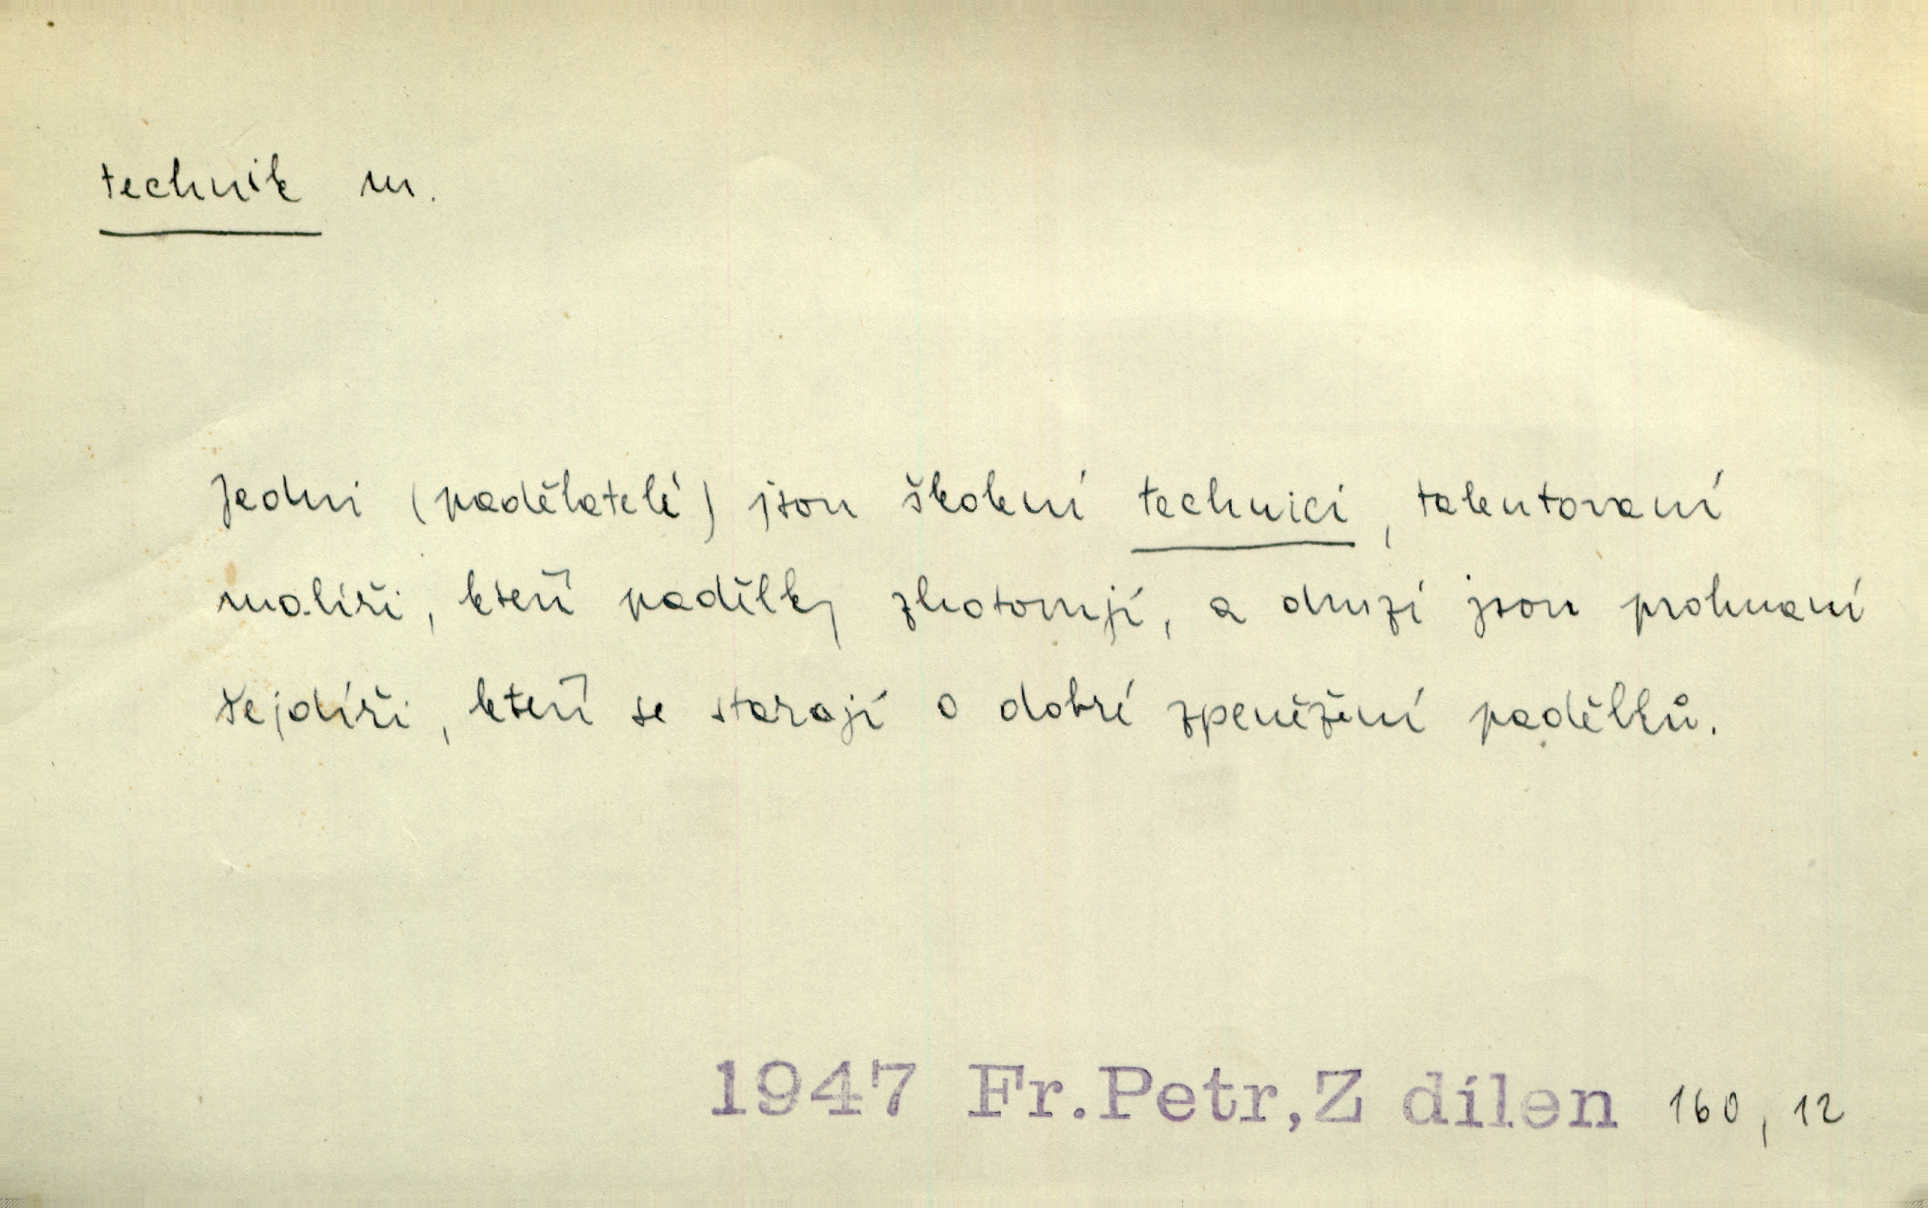 technik m.
Jedni (padělatelé) jsou školení technici, talentovaní
malíři, kteří padělky zhotovují, a druzí jsou prohnaní
šejdíři, kteří se starají o dobré zpeněžení padělků.
1947 Fr.Petr,Z dílen 160, 12